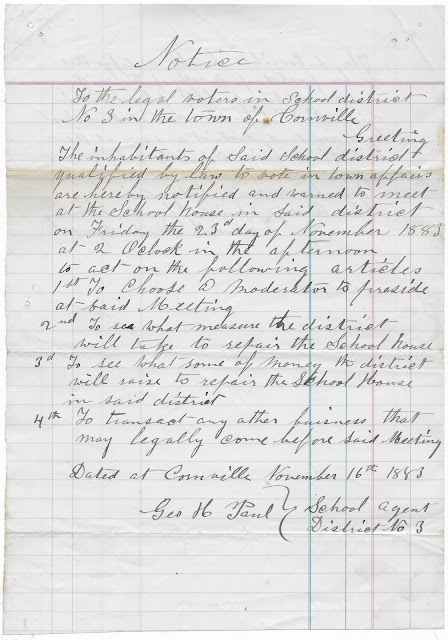 Notice
To the legal voters in School district
No 3 in the town of Cornville
Greeting
The inhabitants of Said School district
qualified by law to vote in town affairs
are hereby notified and warned to meet
at the School House in Said district
on Friday the 23d day of November 1883
at 2 Oclock in the afternoon
to act on the following articles
1st To Choose a Moderator to preside
at Said Meeting
2nd To see what measure the district
will take to repair the School House
3d To see what some of money th district
will raise to repair the School House
in said district
4th To transact any other buisness that
may legally come before said Meeting
Dated at Cornville November 16th 1883
Geo H Paul } School Agent
District No 3